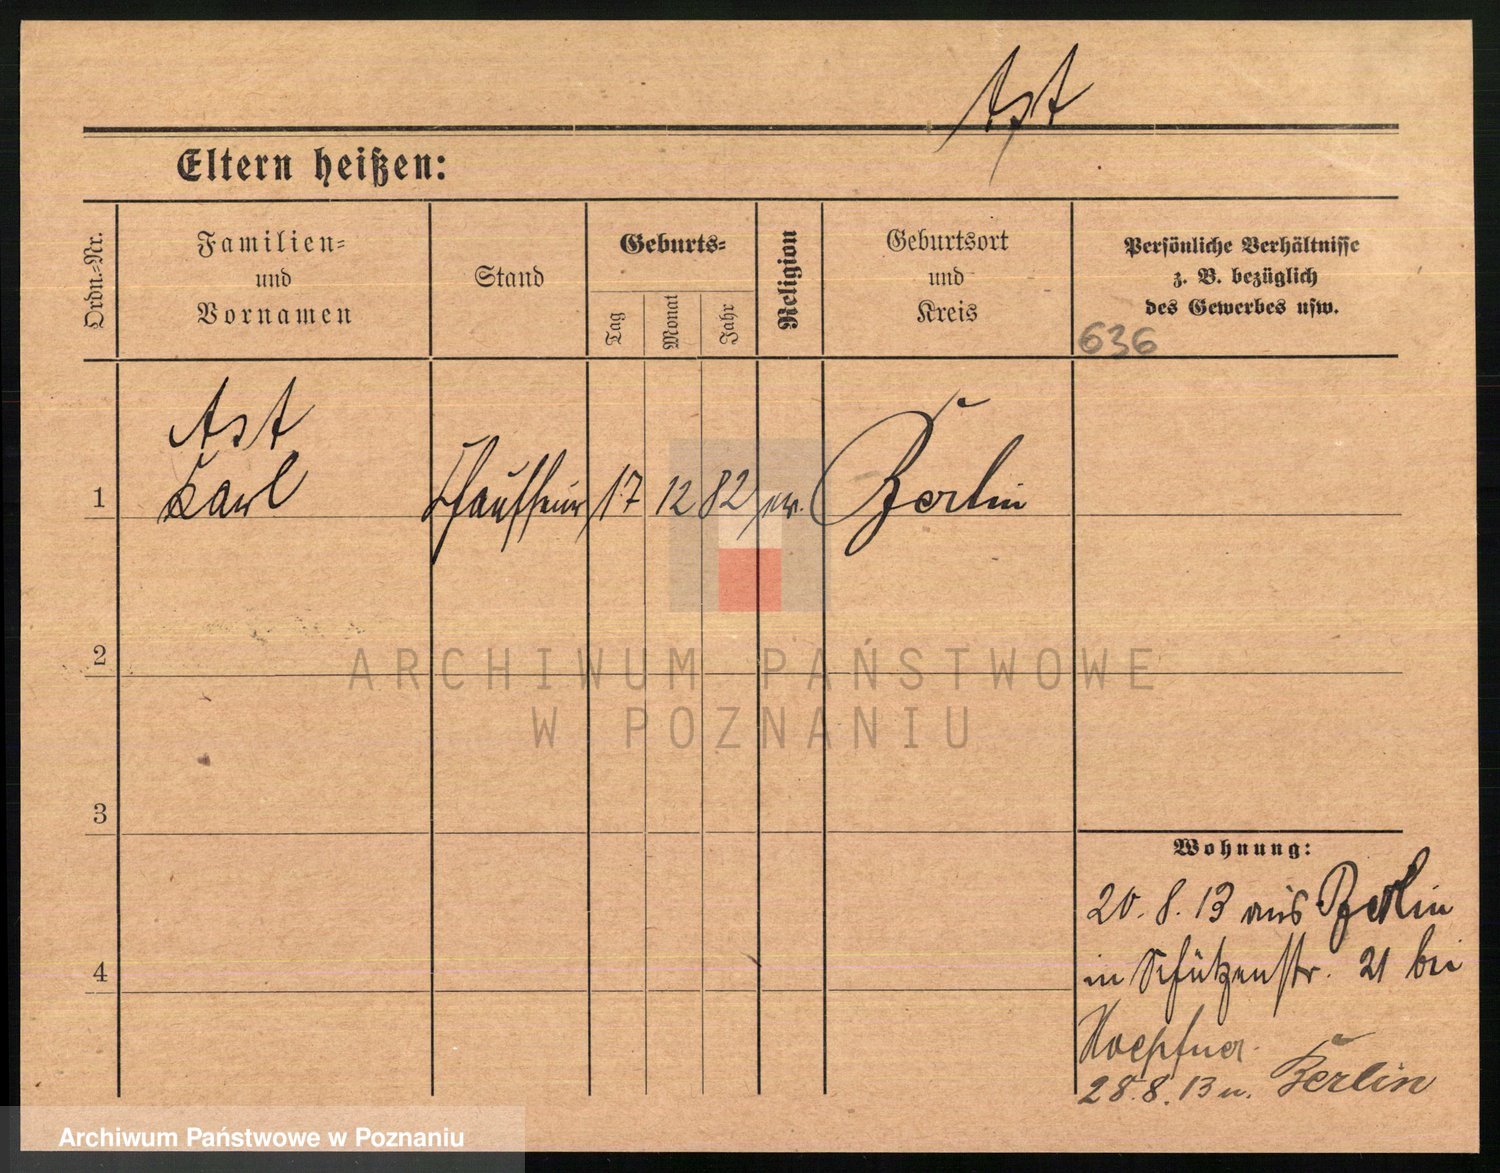 Ast
Eltern heißen:
Ordn.-Nr.
Familien-
und
Vornamen
Stand
Geburts-
Tag
Monat
Jahr
Religion
Geburtsort
und
Kreis
Persönliche Verhältnisse
z. B. bezüglich
des Gewerbes usw.
636
Ast
1 Karl Chauffeur 17 12 82 ev. Berlin
2
ARCHIWUM PAŃSTWOWE
W POZNANIU
3
Wohnung:
20. 8. 13 aus Berlin
4 in Schützenstr. 21 bei
Hoepfner.
28. 8. 13 n. Berlin
Archiwum Państwowe w Poznaniu